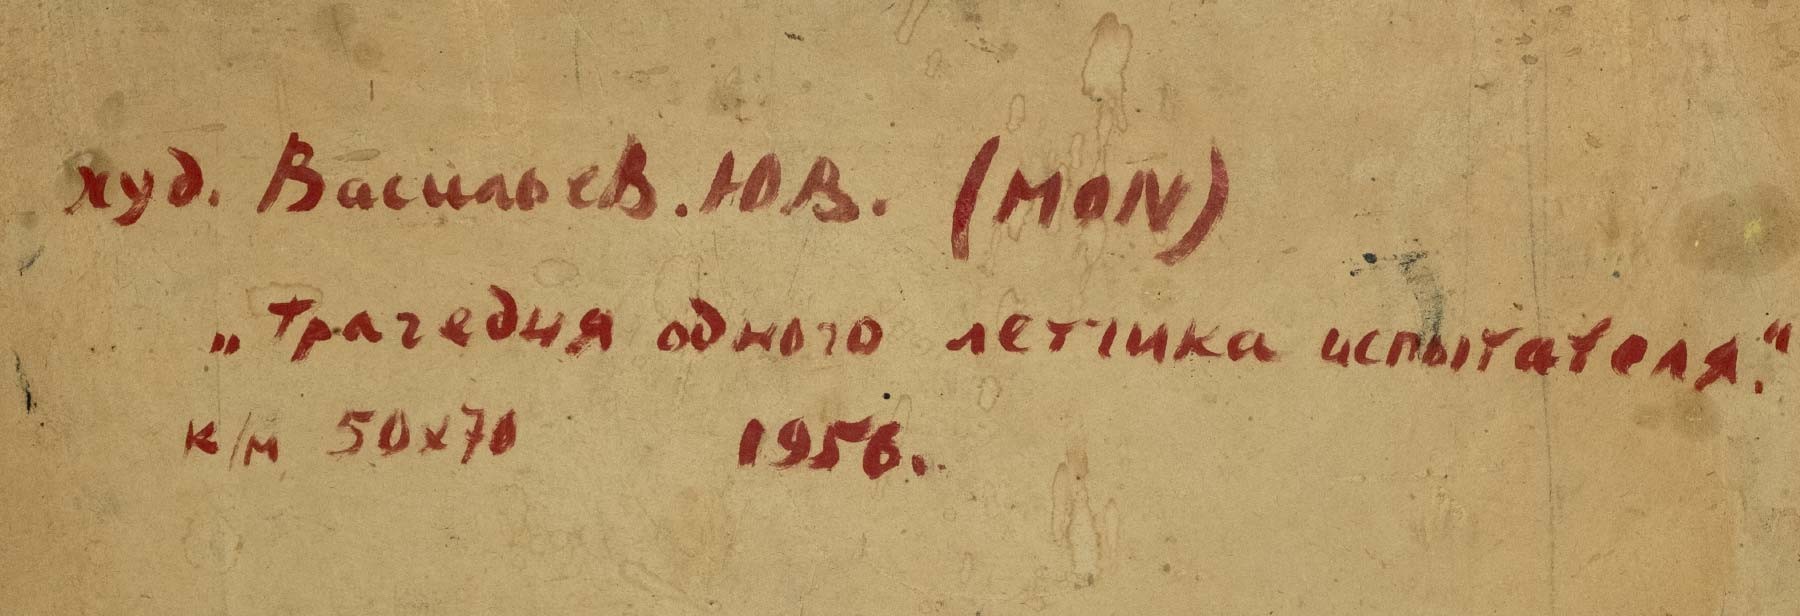 худ. Васильев. Ю В. (МОN)
„Трагедия одного летчика испытателя."
к/м 50х70 1956.